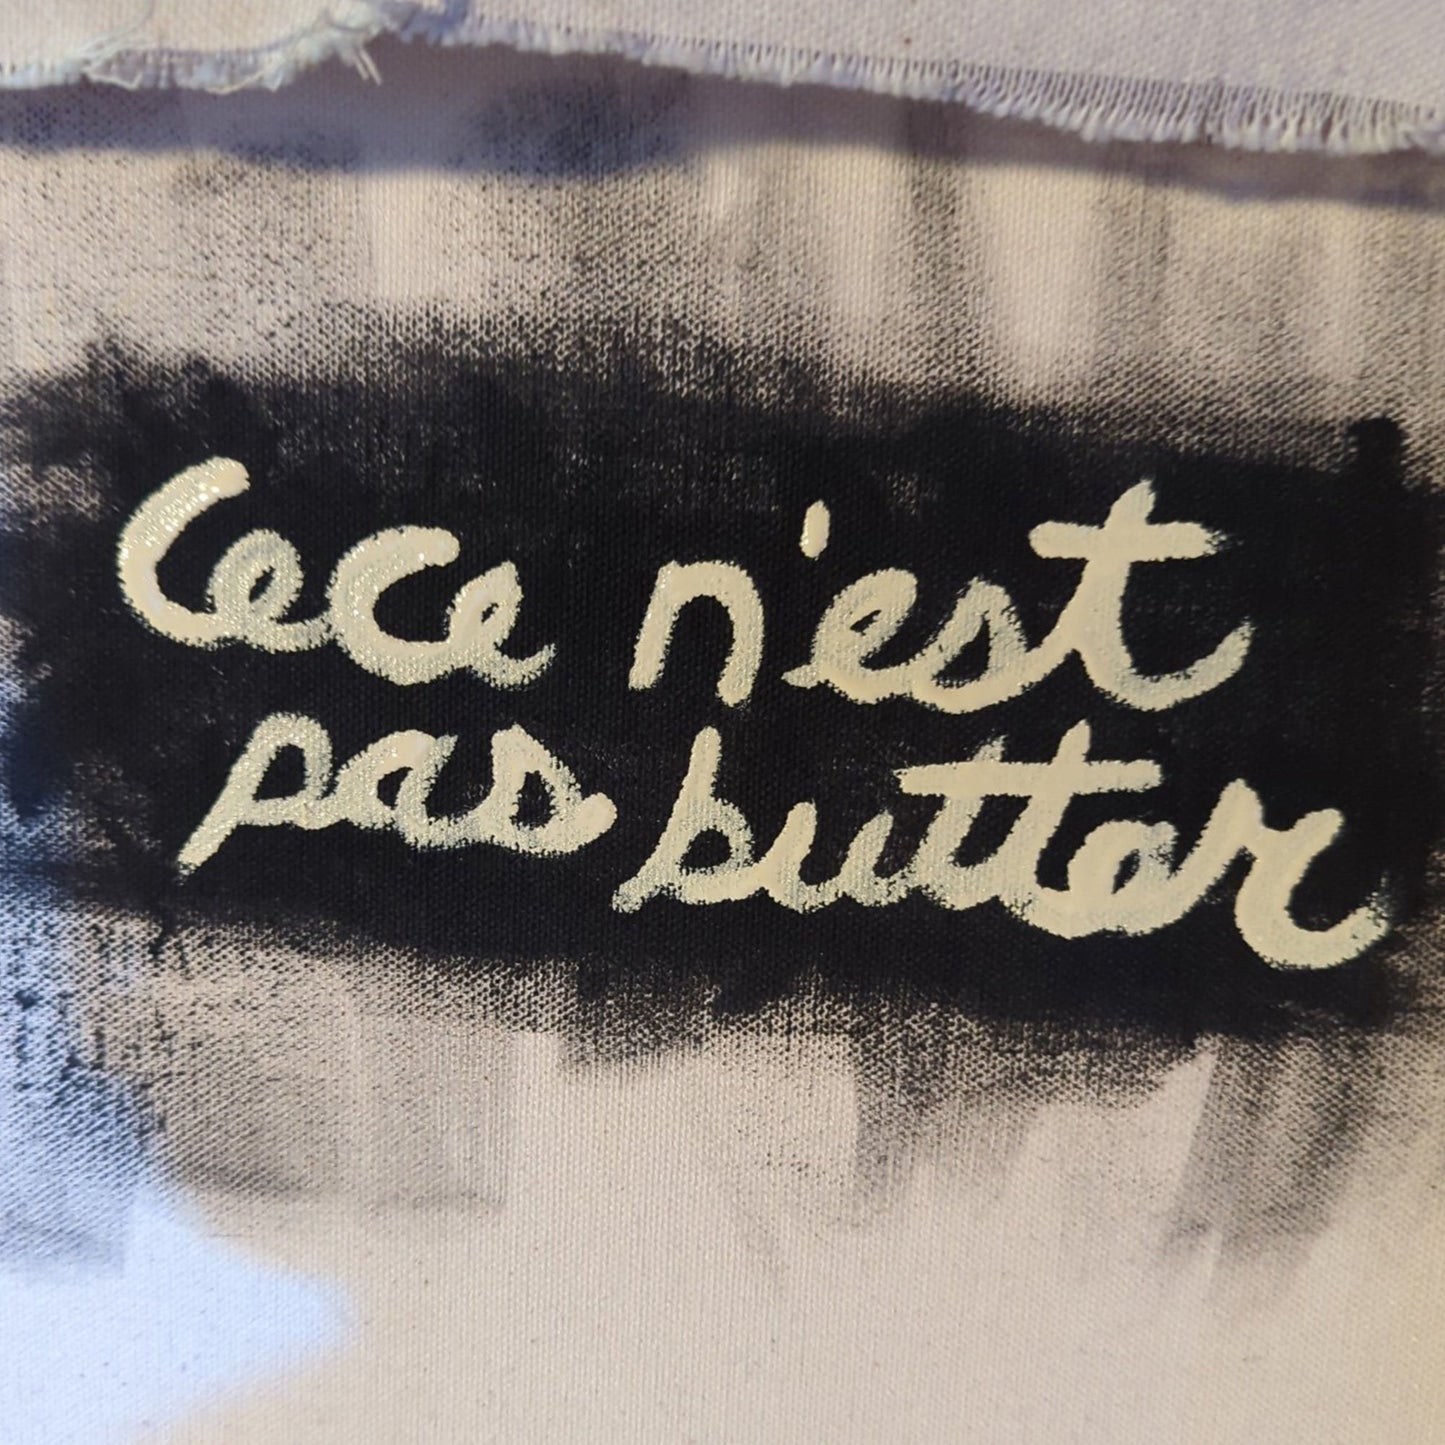 Cece n'est
pas butter